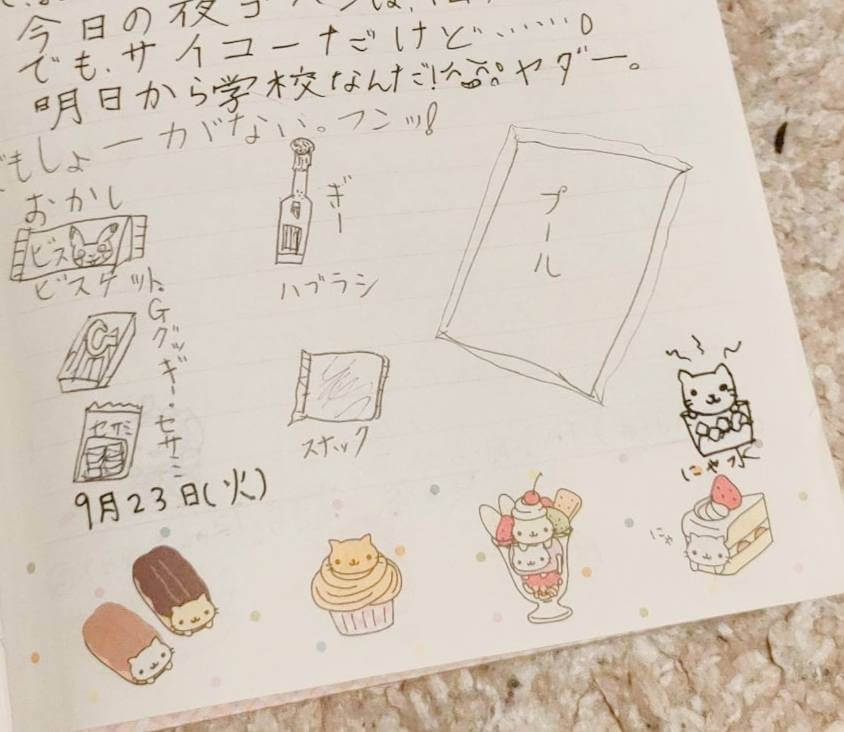 今日の夜ゴハンは、
でも、サイコーだけど……。
明日から学校なんだ!ヤダー。
でもしょーがない。フンッ!
おかし
ビス
ビスケット
G
グッギー・セサミ
セサミ
9月23日(火)
ぎー
ハブラシ
スナック
プール
にゃ水
にゃ